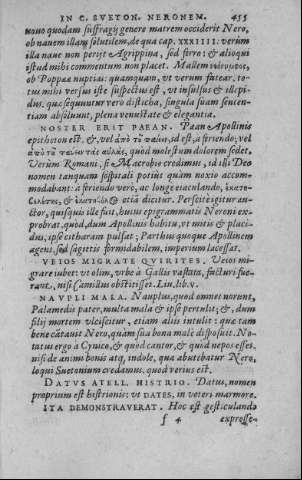 IN C. SVETON. NERONEM. 455
nouo quodam suffragij genere matrem occiderit Nero,
ob nauem illam solutilem, de qua cap. XXXIIII. verùm
illa naue non perijt Agrippina, sed ferro: & alioqui
istud mihi commentum non placet. Mallem
ob Poppææ nuptias: quamquam, vt verum fatear, to-
tus mihi versus iste suspectus est, vt insulsus & illepi-
dus. quæ sequuntur verò disticha, singula suam senten-
tiam absoluunt, plena venustate & elegantia.
NOSTER ERIT PAEAN. Pæan Apollinis
epitheton est, &, vel ἀπὸ τοῦ παίειν, id est, à feriendo; vel
ἀπὸ τοῦ παύειν τὰς quod molestum dolorem sedet.
Verùm Romani, si Macrobio credimus, id illi Deo
nomen tanquam sospitali potiùs quàm noxio accom-
modabant: à feriendo verò, ac longè eiaculando, ἑκατη-
βελέτης, & etiã dicitur. Perscitè igitur au-
ctor, quisquis ille fuit, huius epigrammatis Neroni ex-
probrat, quòd dum Apollinis habitu, vt mitis & placi-
dus, ipse citharam pulsat; Parthus quoque Apollinem
agens, sed sagittis formidabilem, imperium lacessat.
VEIOS MIGRATE QVIRITES. Veios mi-
grare iubet: vt olim, vrbe à Gallis vastata, facturi fue-
rant, nisi Camillus obstitisset. Liu. lib. v.
NAVPLI MALA. Nauplus, quod omnes norunt,
Palamedis pater, multa mala & ipse pertulit; &, dum
filij mortem vlciscitur, etiam alijs intulit: quæ tam
bene cãtauit Nero, quàm sua bona malè disposuit. No-
tatus ergo à Cynico, & quòd cantor, & quòd nepos esset.
nisi de animi bonis atq, indole, qua abutebatur Nero,
loqui Suetonium credamus. quod verius est.
DATVS ATELL. HISTRIO. Datus, nomen
proprium est histrionis: vt DATES, in veteri marmore.
ITA DEMONSTRAVERAT. Hoc est gesticulando
f 4 expresse-